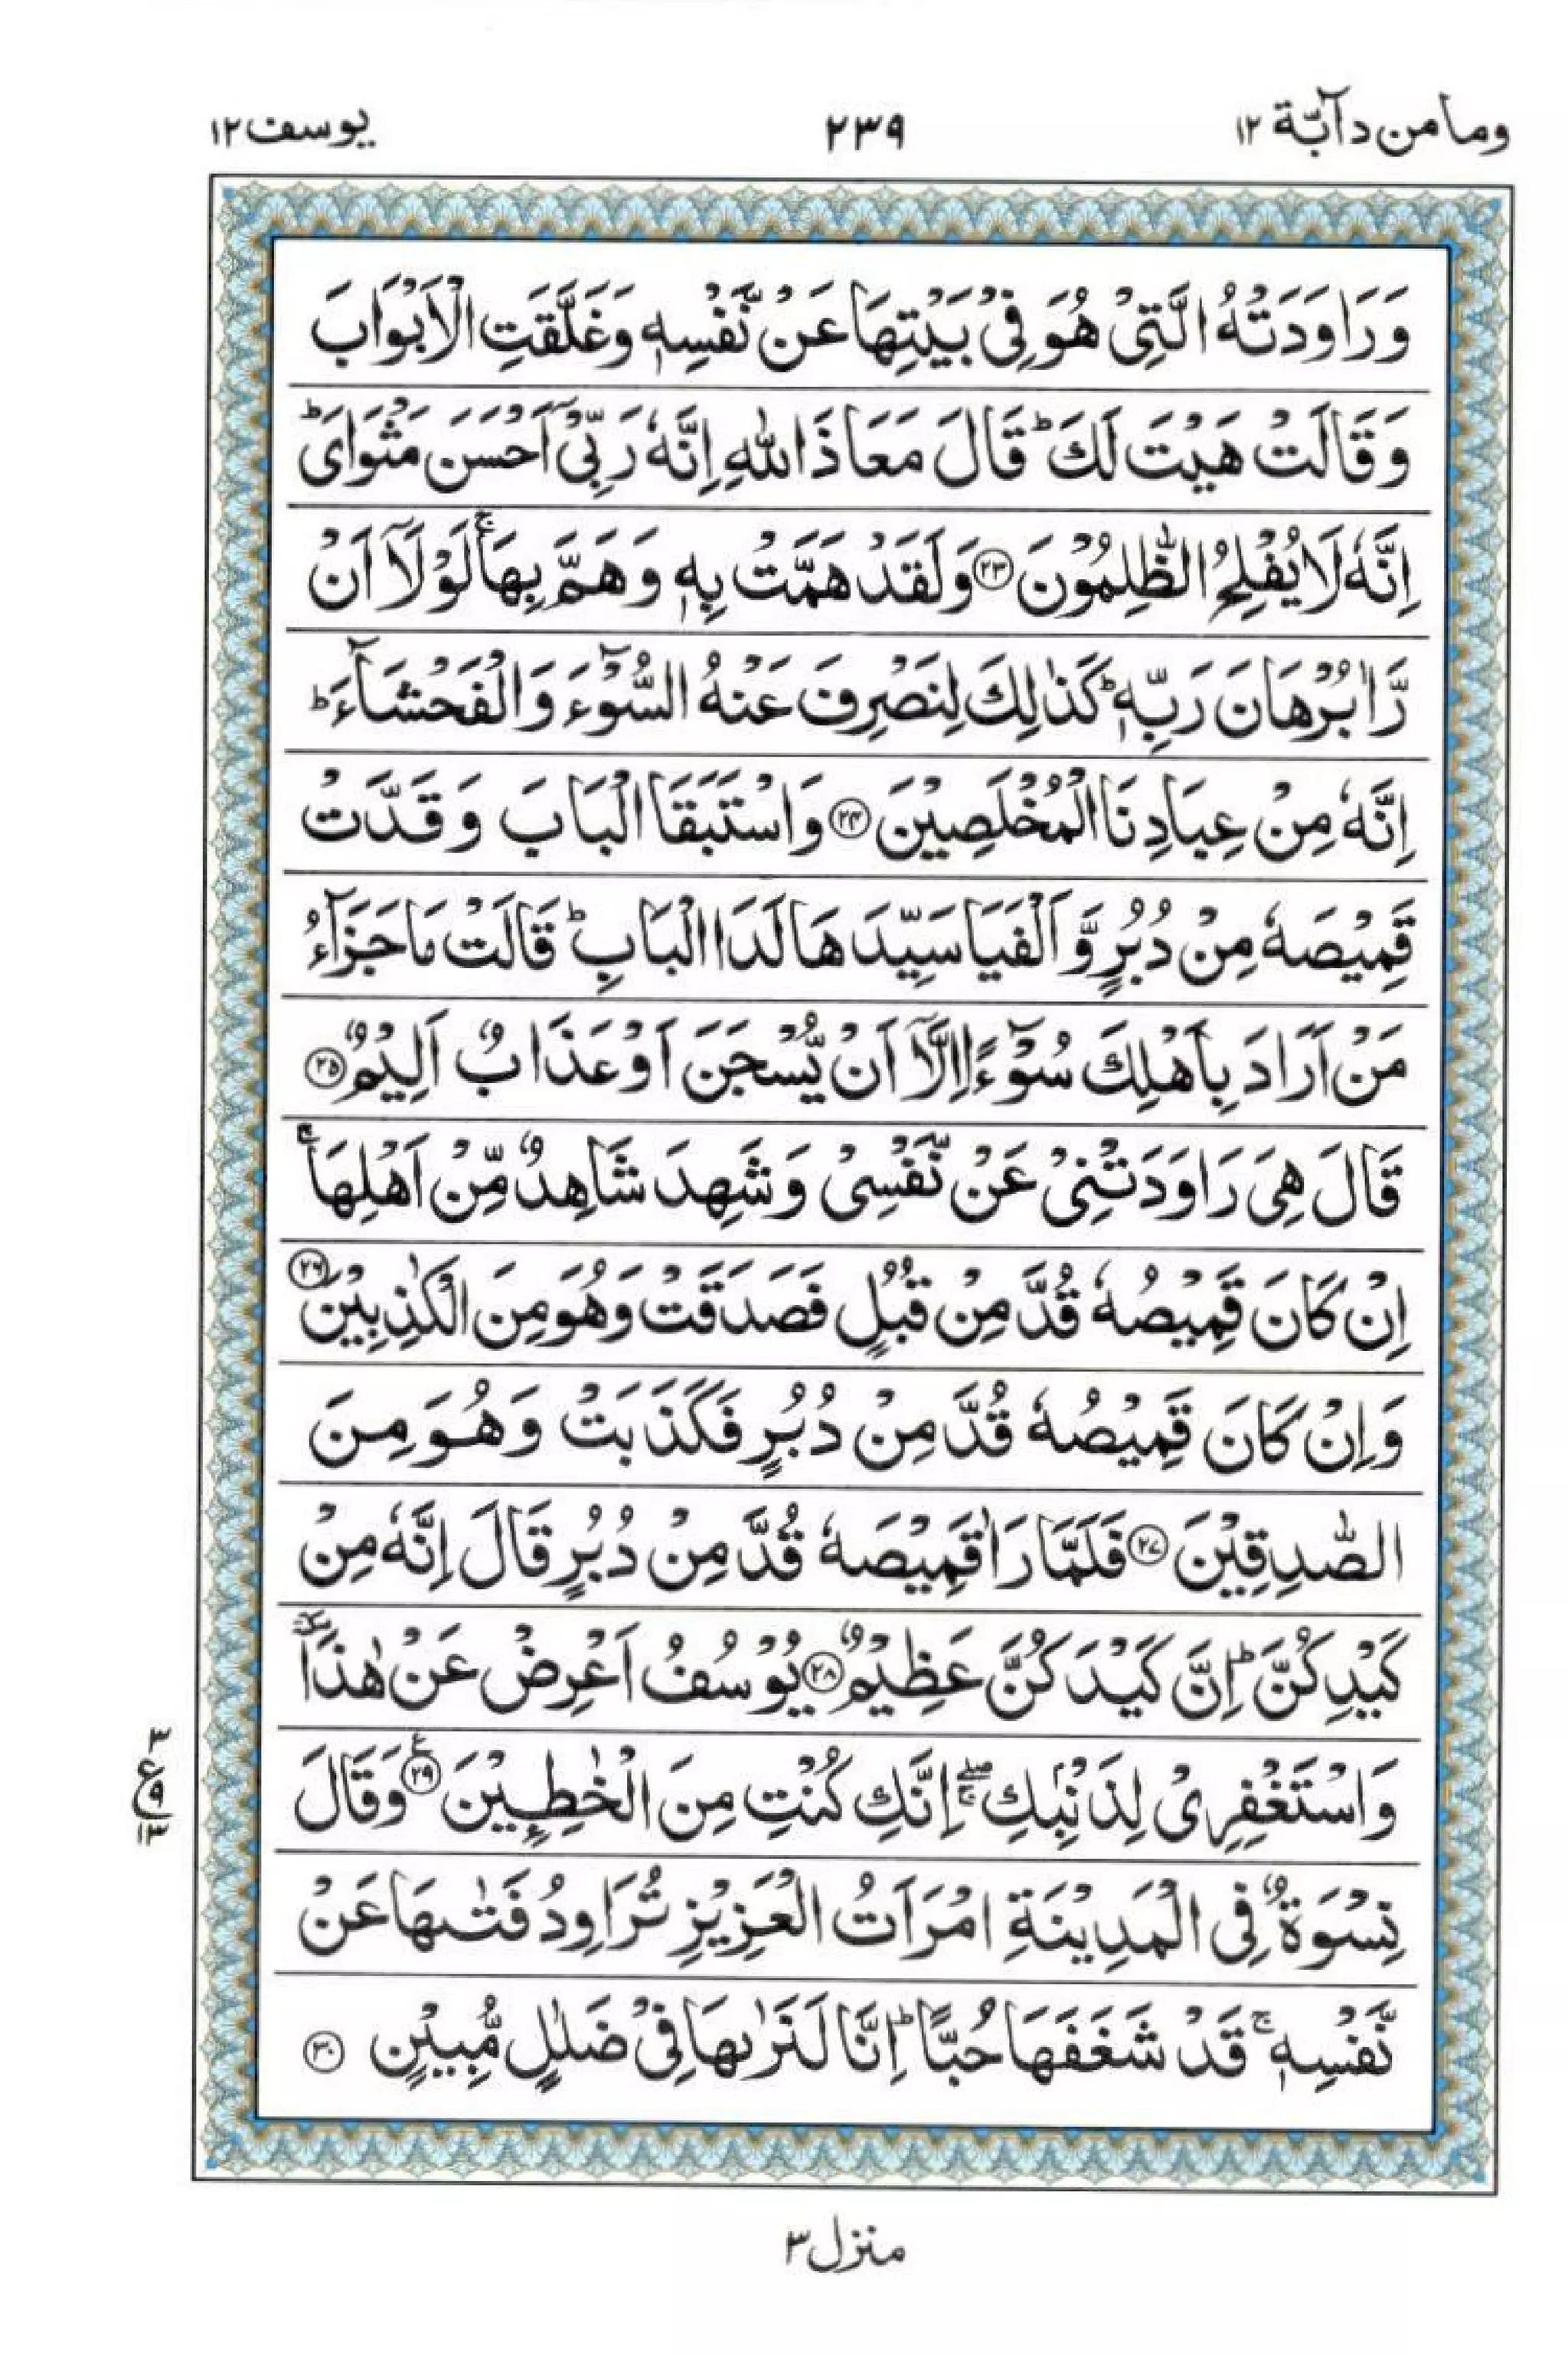 وما من دآبّة ١٢
٢٣٩
يوسف ١٢
وَرَاوَدَتْهُ الَّتِیْ هُوَ فِیْ بَیْتِهَا عَنْ نَّفْسِهٖ وَغَلَّقَتِ الْاَبْوَابَ
وَقَالَتْ هَیْتَ لَكَؕ قَالَ مَعَاذَ اللّٰهِ اِنَّهٗ رَبِّیْۤ اَحْسَنَ مَثْوَایَؕ
اِنَّهٗ لَا یُفْلِحُ الظّٰلِمُوْنَ ۝٢٣ وَلَقَدْ هَمَّتْ بِهٖ وَهَمَّ بِهَاۚ لَوْلَاۤ اَنْ
رَّاٰ بُرْهَانَ رَبِّهٖؕ كَذٰلِكَ لِنَصْرِفَ عَنْهُ السُّوْٓءَ وَالْفَحْشَآءَؕ
اِنَّهٗ مِنْ عِبَادِنَا الْمُخْلَصِیْنَ ۝٢٤ وَاسْتَبَقَا الْبَابَ وَقَدَّتْ
قَمِیْصَهٗ مِنْ دُبُرٍ وَّاَلْفَیَا سَیِّدَهَا لَدَا الْبَابِؕ قَالَتْ مَا جَزَآءُ
مَنْ اَرَادَ بِاَهْلِكَ سُوْٓءًا اِلَّاۤ اَنْ یُّسْجَنَ اَوْ عَذَابٌ اَلِیْمٌ ۝٢٥
قَالَ هِیَ رَاوَدَتْنِیْ عَنْ نَّفْسِیْ وَشَهِدَ شَاهِدٌ مِّنْ اَهْلِهَاۚ
اِنْ كَانَ قَمِیْصُهٗ قُدَّ مِنْ قُبُلٍ فَصَدَقَتْ وَهُوَ مِنَ الْكٰذِبِیْنَ ۝٢٦
وَاِنْ كَانَ قَمِیْصُهٗ قُدَّ مِنْ دُبُرٍ فَكَذَبَتْ وَهُوَ مِنَ
الصّٰدِقِیْنَ ۝٢٧ فَلَمَّا رَاٰ قَمِیْصَهٗ قُدَّ مِنْ دُبُرٍ قَالَ اِنَّهٗ مِنْ
كَیْدِكُنَّؕ اِنَّ كَیْدَكُنَّ عَظِیْمٌ ۝٢٨ یُوْسُفُ اَعْرِضْ عَنْ هٰذَاٚ
وَاسْتَغْفِرِیْ لِذَنْۢبِكِۖۚ اِنَّكِ كُنْتِ مِنَ الْخٰطِـِٕیْنَ ۝٢٩ؒ وَقَالَ
نِسْوَةٌ فِی الْمَدِیْنَةِ امْرَاَتُ الْعَزِیْزِ تُرَاوِدُ فَتٰىهَا عَنْ
نَّفْسِهٖۚ قَدْ شَغَفَهَا حُبًّاؕ اِنَّا لَنَرٰىهَا فِیْ ضَلٰلٍ مُّبِیْنٍ ۝٣٠
٣
ع ٩
١٣
منزل ٣